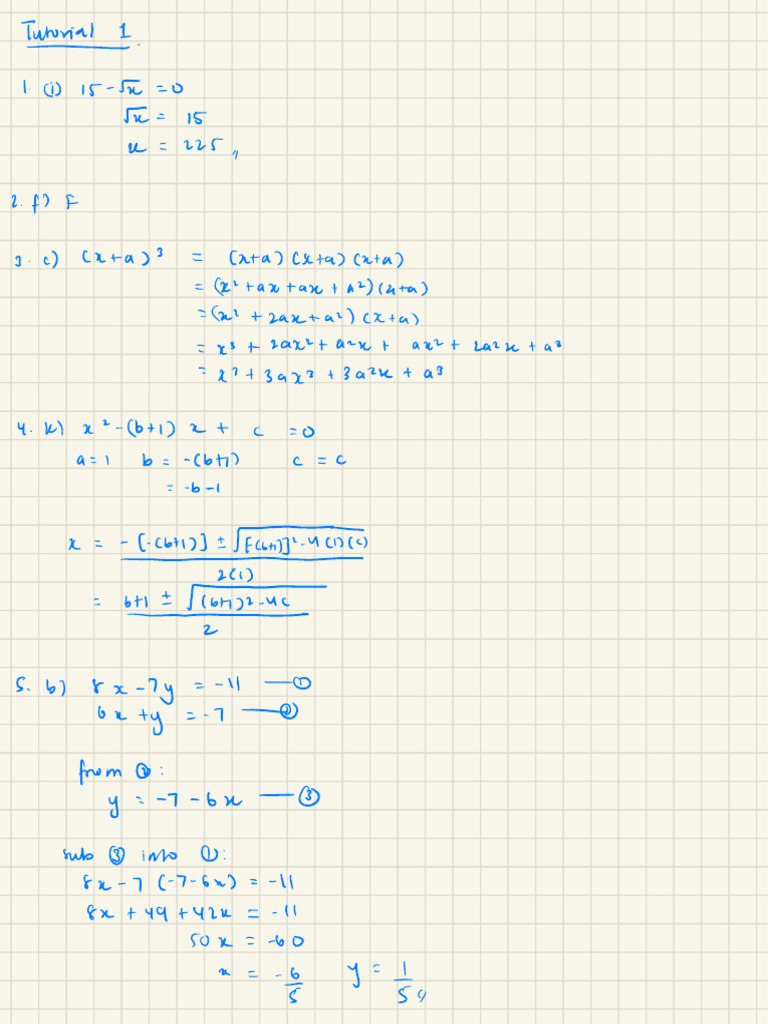 Tutorial 1.
1. (i) 15 - √x = 0
√x = 15
x = 225 //
2. f) F
3. c) (x+a)³ = (x+a)(x+a)(x+a)
= (x² + ax + ax + a²)(x+a)
= (x² + 2ax + a²)(x+a)
= x³ + 2ax² + a²x + ax² + 2a²x + a³
= x³ + 3ax² + 3a²x + a³
4. k) x² - (b+1) x + c = 0
a = 1 b = -(b+1) c = c
= -b - 1
x = (-[-(b+1)] ± √([-(b+1)]² - 4(1)(c))) / 2(1)
= (b+1 ± √((b+1)² - 4c)) / 2
5. b) 8x - 7y = -11 —①
6x + y = -7 —②
from ②:
y = -7 - 6x —③
sub ③ into ①:
8x - 7(-7-6x) = -11
8x + 49 + 42x = -11
50x = -60
x = -6/5 y = 1/5 //